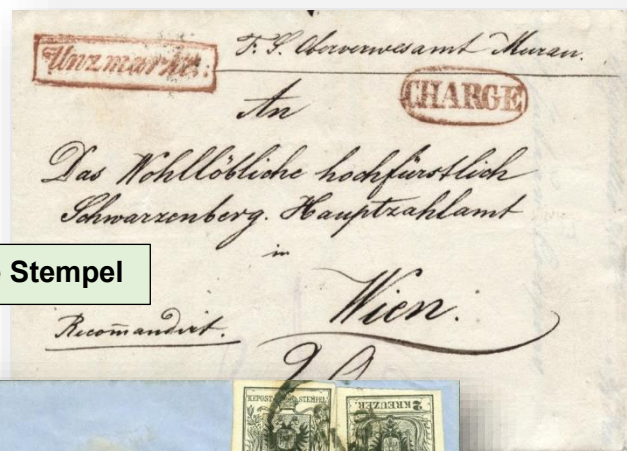 Unzmarkt.
F. S. Oberverwesamt Murau.
CHARGE
An
Das Wohllöbliche hochfürstlich
Schwarzenberg. Hauptzahlamt
in
Stempel
Wien.
Recomandirt.
KKPOST STEMPEL
2 KREUZER.